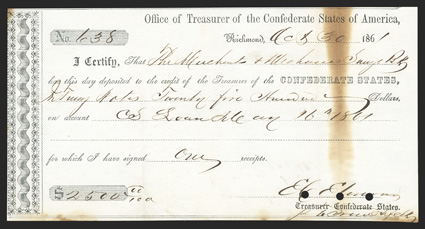 Office of Treasurer of the Confederate States of America,
No. 638 Richmond, Oct 30 1861
I Certify, That The Merchants & Mechanics Savgs Bk
has this day deposited to the credit of the Treasurer of the CONFEDERATE STATES,
in Treasy Notes Twenty five Hundred Dollars,
on account CS Loan Act May 16th 1861
for which I have signed One receipts.
$2500 00/100
Treasurer Confederate States.